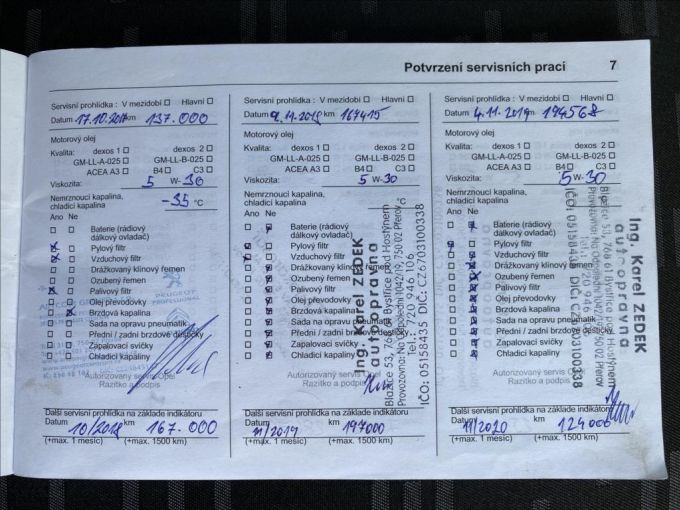 Potvrzení servisních prací 7
Servisní prohlídka : V mezidobí Hlavní
Datum 17.10.2017 km 137.000
Motorový olej
Kvalita: dexos 1 dexos 2
GM-LL-A-025 GM-LL-B-025
ACEA A3 B4 C3
Viskozita: 5 W- 30
Nemrznoucí kapalina,
chladící kapalina -35 °C
Ano Ne
Baterie (rádiový
dálkový ovladač)
Pylový filtr
Vzduchový filtr
Drážkovaný klínový řemen
Ozubený řemen
Palivový filtr
Olej převodovky
Brzdová kapalina
Sada na opravu pneumatik
Přední / zadní brzdové destičky
Zapalovací svíčky
Chladící kapaliny
PEUGEOT
PROFESSIONAL
Autorizovaný servis Opel
Razítko a podpis
Další servisní prohlídka na základe indikátoru
Datum km
10/2018 167.000
(+max. 1 mesíc) (+max. 1500 km)
Servisní prohlídka : V mezidobí Hlavní
Datum km 167415
Motorový olej
Kvalita: dexos 1 dexos 2
GM-LL-A-025 GM-LL-B-025
ACEA A3 B4 C3
Viskozita: 5 W- 30
Nemrznoucí kapalina,
chladící kapalina
Ano Ne
Baterie (rádiový
dálkový ovladač)
Pylový filtr
Vzduchový filtr
Drážkovaný klínový řemen
Ozubený řemen
Palivový filtr
Olej převodovky
Brzdová kapalina
Sada na opravu pneumatik
Přední / zadní brzdové destičky
Zapalovací svíčky
Chladící kapaliny
Ing. Karel ZEDEK
autoopravna
Blazice 53, 768 61 Bystřice pod Hostýnem
Provozovna: Na Odpolední 1042/19, 750 02 Přerov
Tel.: 720 946 106
IČO: 05158435 DIČ: CZ6703100338
Autorizovaný servis Opel
Razítko a podpis
Další servisní prohlídka na základe indikátoru
Datum km
11/2019 197000
(+max. 1 mesíc) (+max. 1500 km)
Servisní prohlídka : V mezidobí Hlavní
Datum 4.11.2019 km 194568
Motorový olej
Kvalita: dexos 1 dexos 2
GM-LL-A-025 GM-LL-B-025
ACEA A3 B4 C3
Viskozita: 5 W- 30
Nemrznoucí kapalina,
chladící kapalina
Ano Ne
Baterie (rádiový
dálkový ovladač)
Pylový filtr
Vzduchový filtr
Drážkovaný klínový řemen
Ozubený řemen
Palivový filtr
Olej převodovky
Brzdová kapalina
Sada na opravu pneumatik
Přední / zadní brzdové destičky
Zapalovací svíčky
Chladící kapaliny
Ing. Karel ZEDEK
autoopravna
Blazice 53, 768 61 Bystřice pod Hostýnem
Provozovna: Na Odpolední 1042/19, 750 02 Přerov
Tel.: 720 946 106
IČO: 05158435 DIČ: CZ6703100338
Autorizovaný servis Opel
Razítko a podpis
Další servisní prohlídka na základe indikátoru
Datum km
11/2020
(+max. 1 mesíc) (+max. 1500 km)